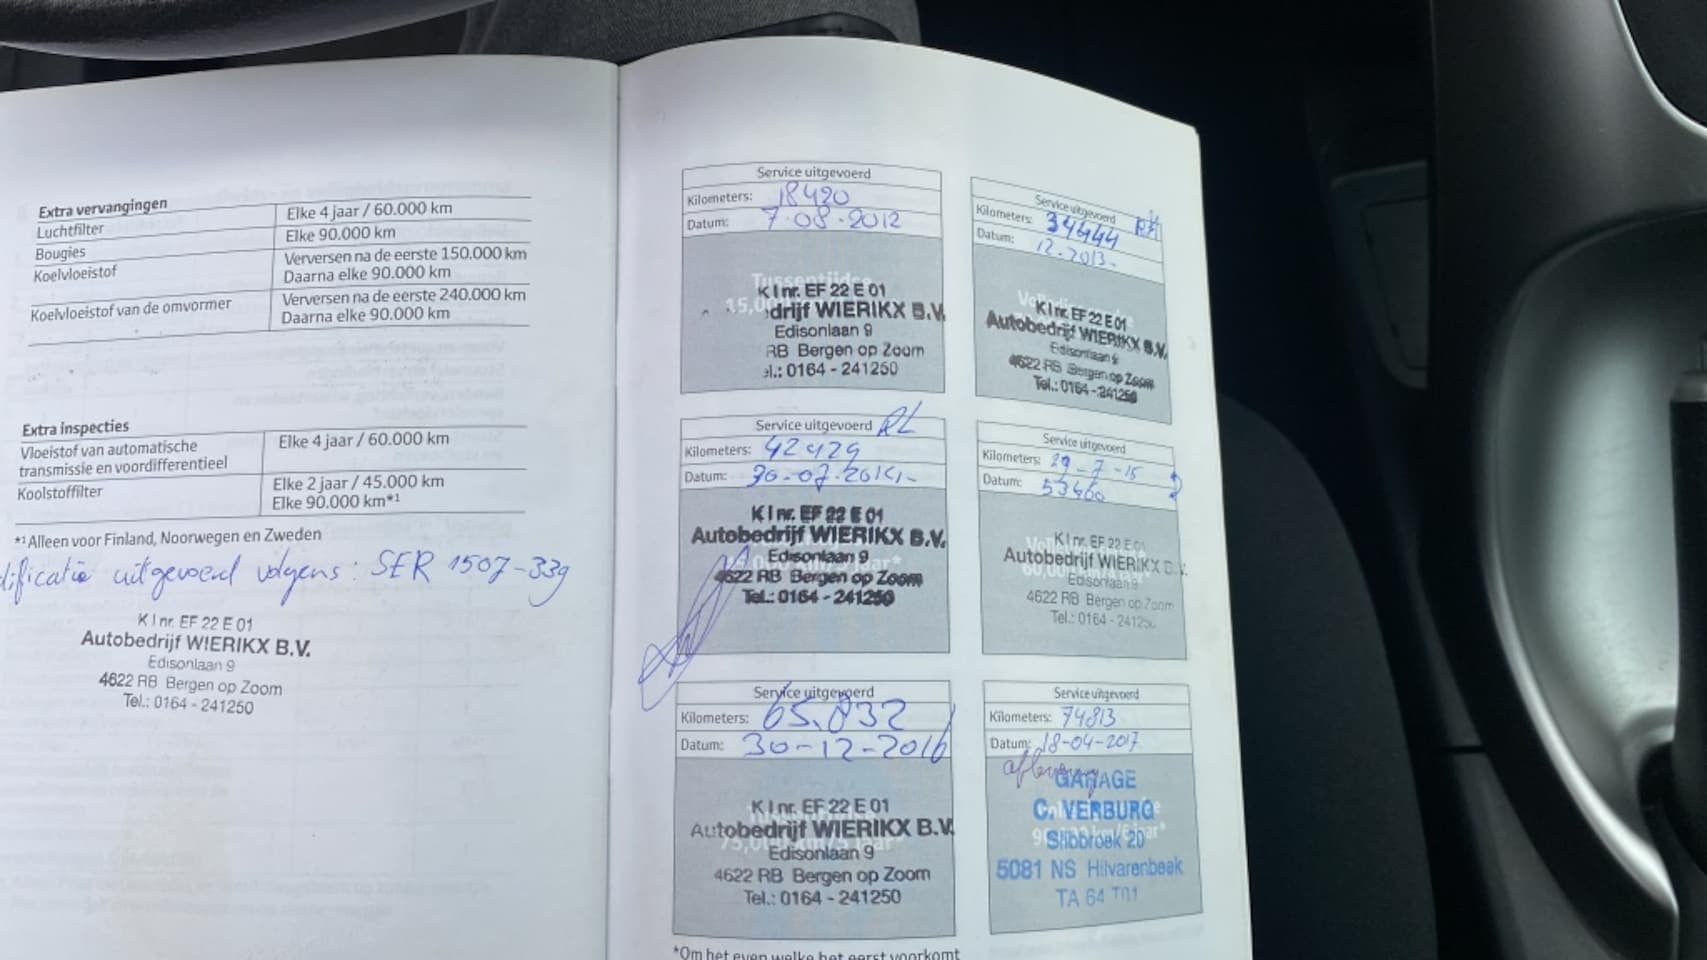 Extra vervangingen
Luchtfilter Elke 4 jaar / 60.000 km
Bougies Elke 90.000 km
Koelvloeistof Verversen na de eerste 150.000 km
Daarna elke 90.000 km
Koelvloeistof van de omvormer Verversen na de eerste 240.000 km
Daarna elke 90.000 km
Extra inspecties
Vloeistof van automatische
transmissie en voordifferentieel Elke 4 jaar / 60.000 km
Koolstoffilter Elke 2 jaar / 45.000 km
Elke 90.000 km*1
*1 Alleen voor Finland, Noorwegen en Zweden
dificatie uitgevoerd volgens: SER 1507-339
K I nr. EF 22 E 01
Autobedrijf WIERIKX B.V.
Edisonlaan 9
4622 RB Bergen op Zoom
Tel.: 0164 - 241250
Service uitgevoerd
Kilometers: 18420
Datum: 7-08-2012
Tussentijdse
15,0
K I nr. EF 22 E 01
drijf WIERIKX B.V.
Edisonlaan 9
RB Bergen op Zoom
el.: 0164 - 241250
Service uitgevoerd
Kilometers: 34444
Datum: 12-2013-
K I nr. EF 22 E 01
Autobedrijf WIERIKX B.V.
Edisonlaan 9
4622 RB Bergen op Zoom
Tel.: 0164 - 241250
Service uitgevoerd RL
Kilometers: 42429
Datum: 30-07-2014-
K I nr. EF 22 E 01
Autobedrijf WIERIKX B.V.
Edisonlaan 9
4622 RB Bergen op Zoom
Tel.: 0164 - 241250
Service uitgevoerd
Kilometers: 29-7-15
Datum: 53460
K I nr. EF 22 E 01
Autobedrijf WIERIKX B.V.
Edisonlaan 9
4622 RB Bergen op Zoom
Tel.: 0164 - 241250
Service uitgevoerd
Kilometers: 65.832
Datum: 30-12-2016
K I nr. EF 22 E 01
Autobedrijf WIERIKX B.V.
75,000 km/5 jaar*
Edisonlaan 9
4622 RB Bergen op Zoom
Tel.: 0164 - 241250
Service uitgevoerd
Kilometers: 74813
Datum: 18-04-2017
aflevering
GARAGE
C. VERBURG
Slibbroek 20
5081 NS Hilvarenbeek
TA 64 T01
*Om het even welke het eerst voorkomt